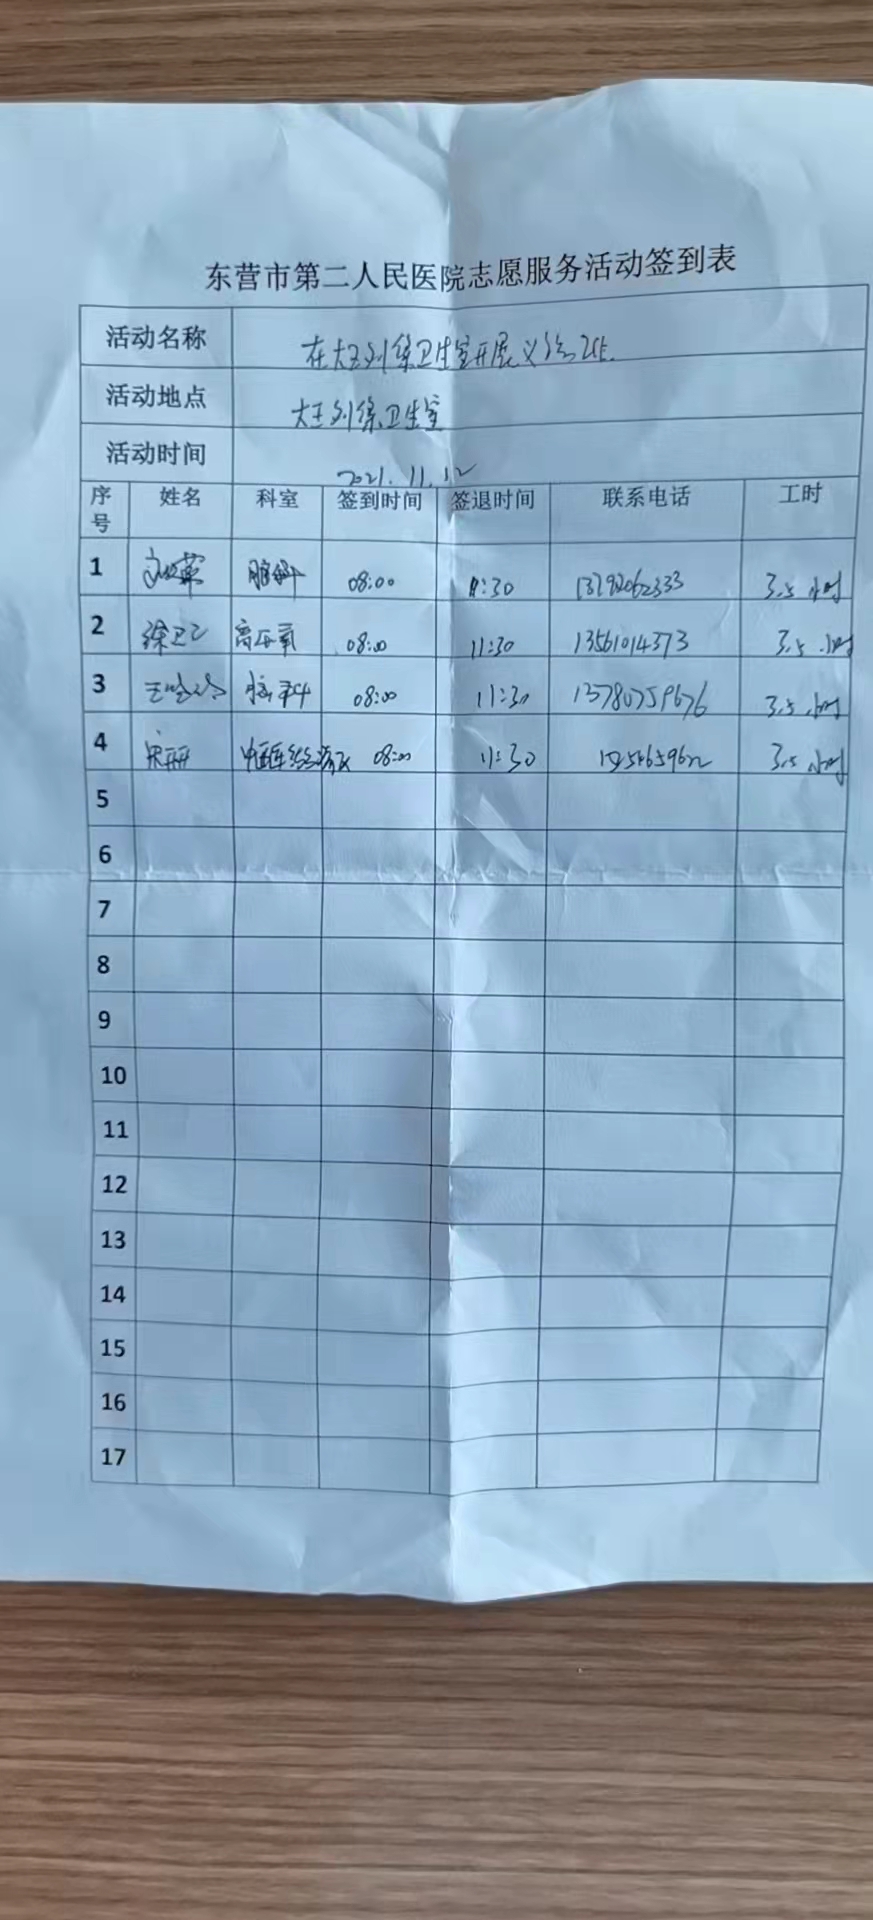 东营市第二人民医院志愿服务活动签到表
活动名称 在大王刘徐卫生室开展义诊
活动地点 大王刘徐卫生室
活动时间 2021.11.12
序号 姓名 科室 签到时间 签退时间 联系电话 工时
1 08:00 11:30 3.5小时
2 徐卫 高压氧 08:00 11:30 13561014373 3.5小时
3 08:00 11:30 13780759676 3.5小时
4 08:00 11:30 3.5小时
5
6
7
8
9
10
11
12
13
14
15
16
17